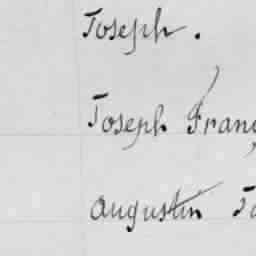 Joseph.
Joseph Franc
Augustin